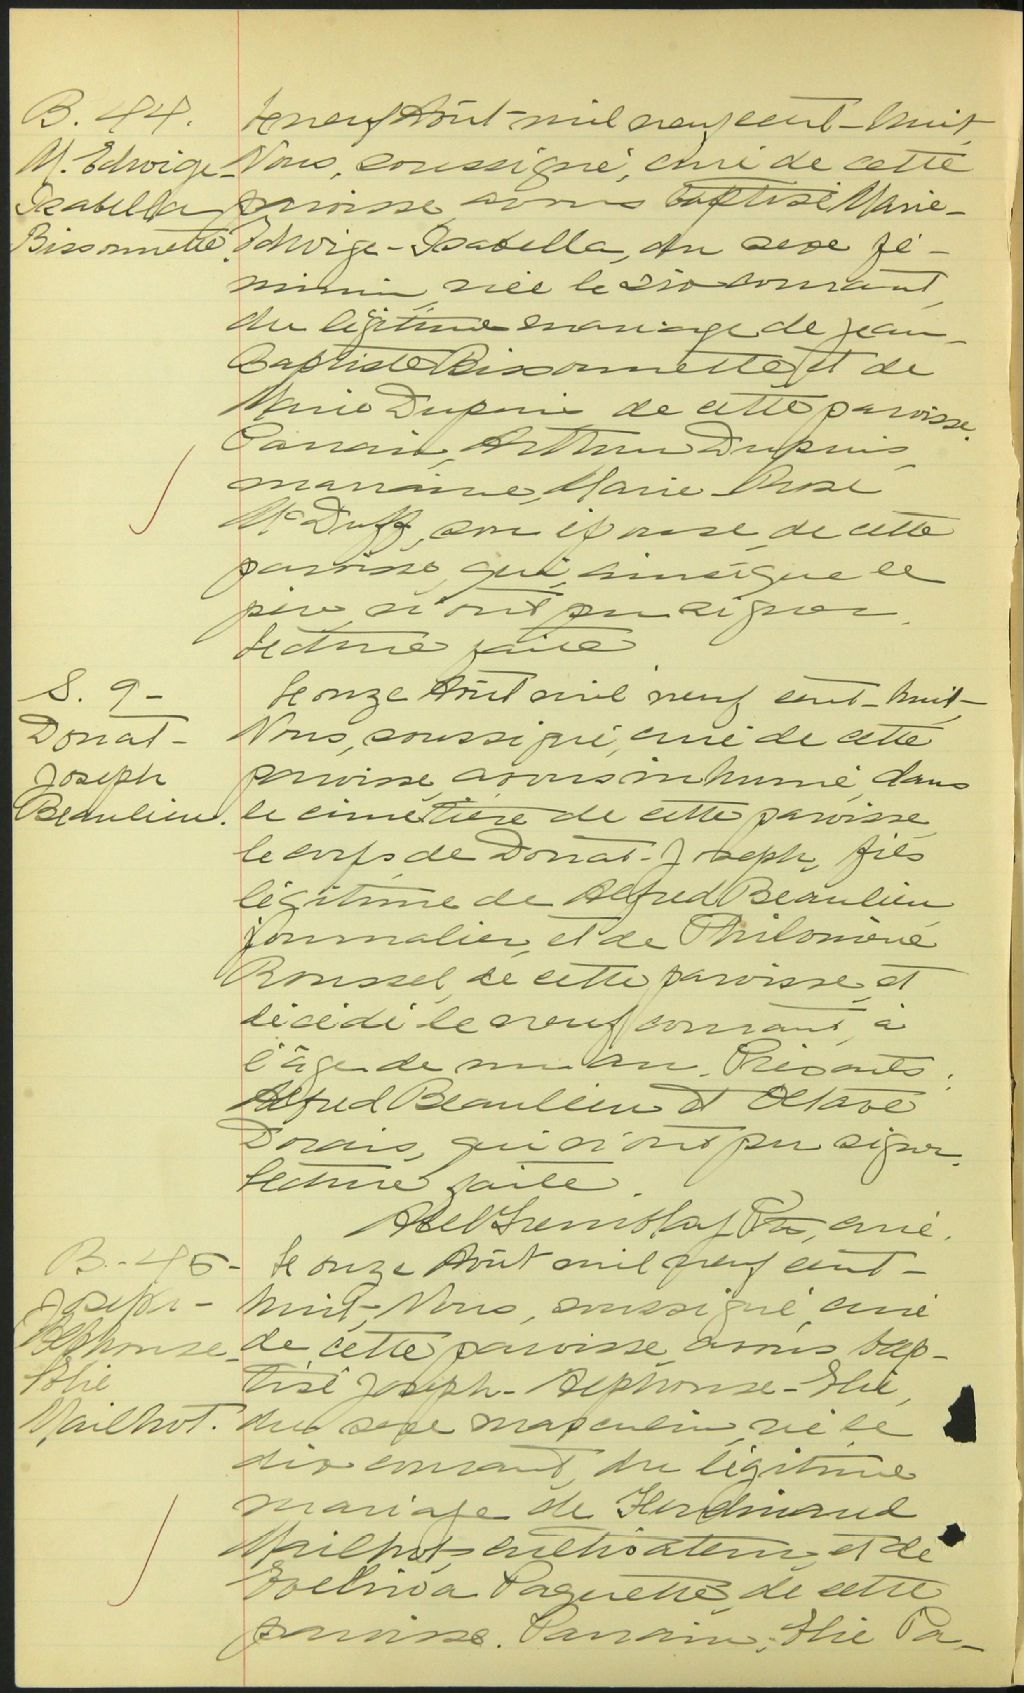 B. 44.
M. Edwige-
Isabella
Bissonnette.
Le neuf Août mil neuf cent-huit,
Nous, soussigné, curé de cette
paroisse, avons baptisé Marie-
Edwige-Isabella, du sexe fé-
minin, née le six courant,
du légitime mariage de Jean-
Baptiste Bissonnette et de
Marie Dupuis de cette paroisse.
Parrain, Arthur Dupuis,
marraine, Marie-Rose
McDuff, son épouse, de cette
paroisse, qui, ainsi que le
père, n'ont pu signer.
Lecture faite
S. 9-
Donat-
Joseph
Beaulieu.
Le onze Août mil neuf cent-huit,
Nous, soussigné, curé de cette
paroisse, avons inhumé, dans
le cimetière de cette paroisse,
le corps de Donat-Joseph, fils
légitime de Alfred Beaulieu,
journalier, et de Philomène
Roussel, de cette paroisse, et
décédé le neuf courant, à
l'âge de un an. Présents:
Alfred Beaulieu et Octave
Dorais, qui n'ont pu signer.
Lecture faite.
Abel Tremblay Ptre, curé.
B.-45-
Joseph-
Alphonse-
Elie
Mailhot.
Le onze Août mil neuf cent-
huit, Nous, soussigné, curé
de cette paroisse, avons bap-
tisé Joseph-Alphonse-Elie,
du sexe masculin, né le
dix courant, du légitime
mariage de Ferdinand
Mailhot, cultivateur, et de
Evelina Paquette, de cette
paroisse. Parrain, Elie Pa-